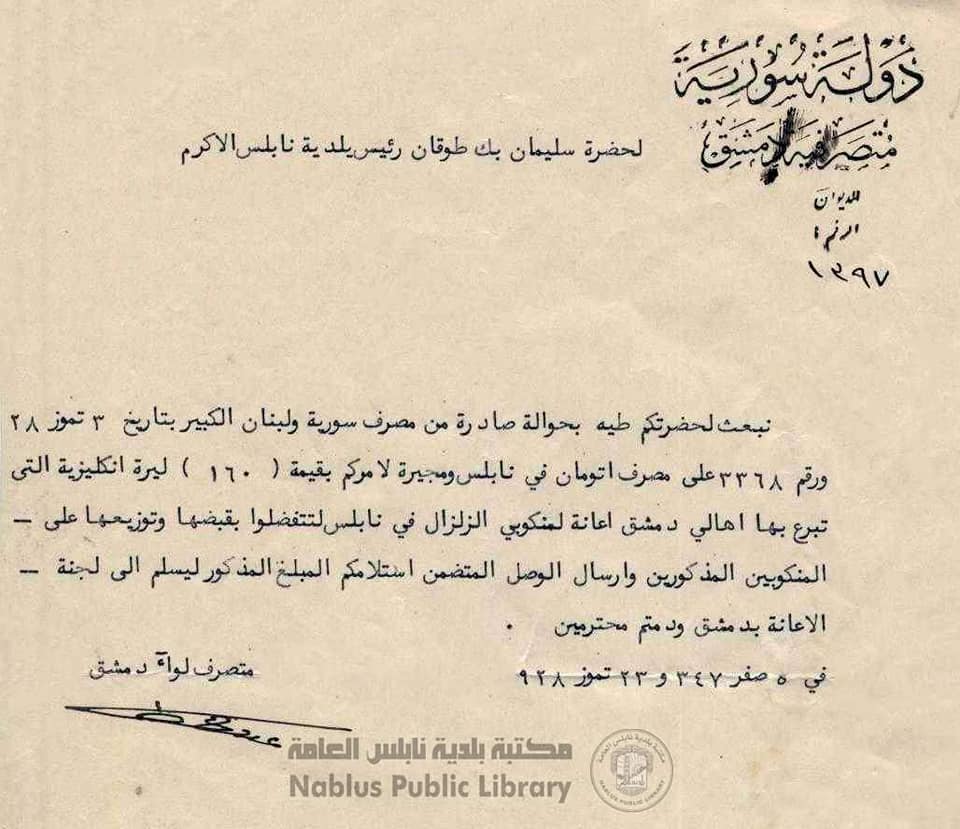 دولة سورية
متصرفية دمشق
الديوان
الرقم :
١٣٩٧
لحضرة سليمان بك طوقان رئيس بلدية نابلس الاكرم
نبعث لحضرتكم طيه بحوالة صادرة من مصرف سورية ولبنان الكبير بتاريخ ٣ تموز ٢٨
ورقم ٣٣٦٨ على مصرف اتومان في نابلس ومجيرة لامركم بقيمة ( ١٦٠ ) ليرة انكليزية التى
تبرع بها اهالي دمشق اعانة لمنكوبي الزلزال في نابلس لتتفضلوا بقبضها وتوزيعها على ــ
المنكوبين المذكورين وارسال الوصل المتضمن استلامكم المبلغ المذكور ليسلم الى لجنة ــ
الاعانة بدمشق ودمتم محترمين .
في ٥ صفر ٣٤٧ و ٢٣ تموز ٩٢٨
متصرف لواء دمشق
مكتبة بلدية نابلس العامة
Nablus Public Library
مكتبة بلدية نابلس العامة
NABLUS PUBLIC LIBRARY